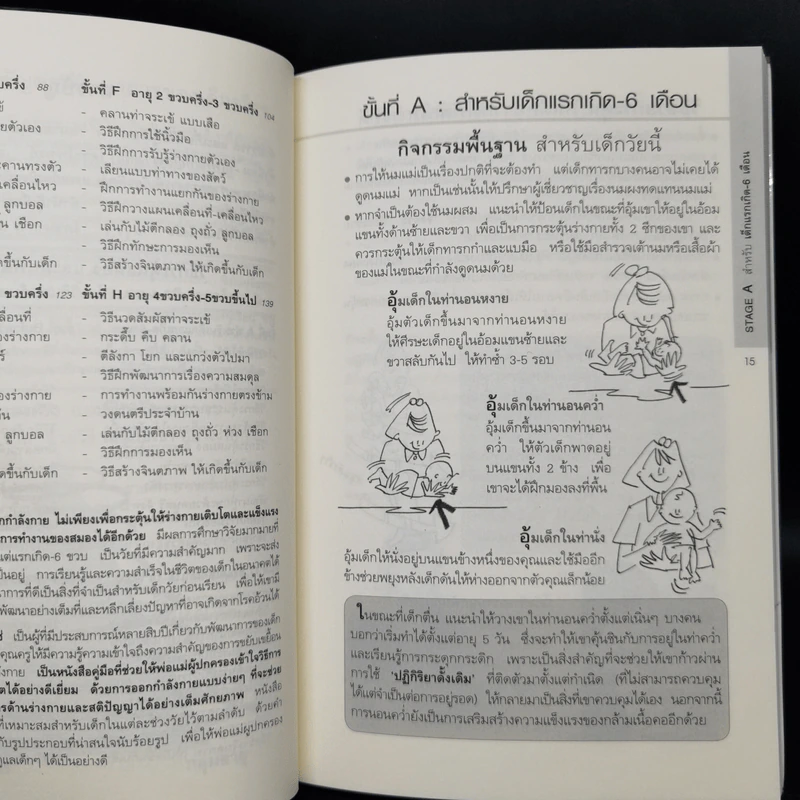 ขวบครึ่ง 88
ขั้นที่ F อายุ 2 ขวบครึ่ง-3 ขวบครึ่ง 104
- คลานท่าจระเข้ แบบเสือ
- วิธีฝึกการใช้นิ้วมือ
- วิธีฝึกการรับรู้ร่างกายตัวเอง
- เลียนแบบท่าทางของสัตว์
- ฝึกการทำงานแยกกันของร่างกาย
- วิธีฝึกวางแผนเคลื่อนที่-เคลื่อนไหว
- เล่นกับไม้ตีกลอง ถุงถั่ว ลูกบอล
- วิธีฝึกทักษะการมองเห็น
- วิธีสร้างจินตภาพ ให้เกิดขึ้นกับเด็ก
ขวบครึ่ง 123
ขั้นที่ H อายุ 4ขวบครึ่ง-5ขวบขึ้นไป 139
- วิธีนวดสัมผัสท่าจระเข้
- กระดึ๊บ คืบ คลาน
- ตีลังกา โยก และแกว่งตัวไปมา
- วิธีฝึกพัฒนาการเรื่องความสมดุล
- การทำงานพร้อมกันร่างกายตรงข้าม
- วงดนตรีประจำบ้าน
- เล่นกับไม้ตีกลอง ถุงถั่ว ห่วง เชือก
- วิธีฝึกการมองเห็น
- วิธีสร้างจินตภาพ ให้เกิดขึ้นกับเด็ก
กกำลังกาย ไม่เพียงเพื่อกระตุ้นให้ร่างกายเติบโตและแข็งแรง
การทำงานของสมองได้อีกด้วย มีผลการศึกษาวิจัยมากมายที่
แต่แรกเกิด-6 ขวบ เป็นวัยที่มีความสำคัญมาก เพราะจะส่ง
เป็นอยู่ การเรียนรู้และความสำเร็จในชีวิตของเด็กในอนาคตได้
าการที่ดีเป็นสิ่งที่จำเป็นสำหรับเด็กวัยก่อนเรียน เพื่อให้เขามี
พัฒนาอย่างเต็มที่และหลีกเลี่ยงปัญหาที่อาจเกิดจากโรคอ้วนได้
เป็นผู้ที่มีประสบการณ์หลายสิบปีเกี่ยวกับพัฒนาการของเด็ก
คุณครูให้มีความรู้ความเข้าใจถึงความสำคัญของการขยับเขยื้อน
ังกาย เป็นหนังสือคู่มือที่ช่วยให้พ่อแม่ผู้ปกครองเข้าใจวิธีการ
ตได้อย่างดีเยี่ยม ด้วยการออกกำลังกายแบบง่ายๆ ที่จะช่วย
การด้านร่างกายและสติปัญญาได้อย่างเต็มศักยภาพ หนังสือ
ที่เหมาะสมสำหรับเด็กในแต่ละช่วงวัยไว้ตามลำดับ ด้วยคำ
กับรูปประกอบที่น่าสนใจนับร้อยรูป เพื่อให้พ่อแม่ผู้ปกครอง
ดูแลเด็กๆ ได้เป็นอย่างดี
ขั้นที่ A : สำหรับเด็กแรกเกิด-6 เดือน
กิจกรรมพื้นฐาน สำหรับเด็กวัยนี้
● การให้นมแม่เป็นเรื่องปกติที่จะต้องทำ แต่เด็กทารกบางคนอาจไม่เคยได้
ดูดนมแม่ หากเป็นเช่นนั้นให้ปรึกษาผู้เชี่ยวชาญเรื่องนมผงทดแทนนมแม่
● หากจำเป็นต้องใช้นมผสม แนะนำให้ป้อนเด็กในขณะที่อุ้มเขาให้อยู่ในอ้อม
แขนทั้งด้านซ้ายและขวา เพื่อเป็นการกระตุ้นร่างกายทั้ง 2 ซีกของเขา และ
ควรกระตุ้นให้เด็กทารกกำและแบมือ หรือใช้มือสำรวจเต้านมหรือเสื้อผ้า
ของแม่ในขณะที่กำลังดูดนมด้วย
อุ้มเด็กในท่านอนหงาย
อุ้มตัวเด็กขึ้นมาจากท่านอนหงาย
ให้ศีรษะเด็กอยู่ในอ้อมแขนซ้ายและ
ขวาสลับกันไป ให้ทำซ้ำ 3-5 รอบ
อุ้มเด็กในท่านอนคว่ำ
อุ้มเด็กขึ้นมาจากท่านอน
คว่ำ ให้ตัวเด็กพาดอยู่
บนแขนทั้ง 2 ข้าง เพื่อ
เขาจะได้ฝึกมองลงที่พื้น
อุ้มเด็กในท่านั่ง
อุ้มเด็กให้นั่งอยู่บนแขนข้างหนึ่งของคุณและใช้มืออีก
ข้างช่วยพยุงหลังเด็กดันให้ห่างออกจากตัวคุณเล็กน้อย
ในขณะที่เด็กตื่น แนะนำให้วางเขาในท่านอนคว่ำตั้งแต่เนิ่นๆ บางคน
บอกว่าเริ่มทำได้ตั้งแต่อายุ 5 วัน ซึ่งจะทำให้เขาคุ้นชินกับการอยู่ในท่าคว่ำ
และเรียนรู้การกระดุกกระดิก เพราะเป็นสิ่งสำคัญที่จะช่วยให้เขาก้าวผ่าน
การใช้ ‘ปฏิกิริยาดั้งเดิม’ ที่ติดตัวมาตั้งแต่กำเนิด (ที่ไม่สามารถควบคุม
ได้แต่จำเป็นต่อการอยู่รอด) ให้กลายมาเป็นสิ่งที่เขาควบคุมได้เอง นอกจากนี้
การนอนคว่ำยังเป็นการเสริมสร้างความแข็งแรงของกล้ามเนื้อคออีกด้วย
STAGE A สำหรับ เด็กแรกเกิด-6 เดือน
15